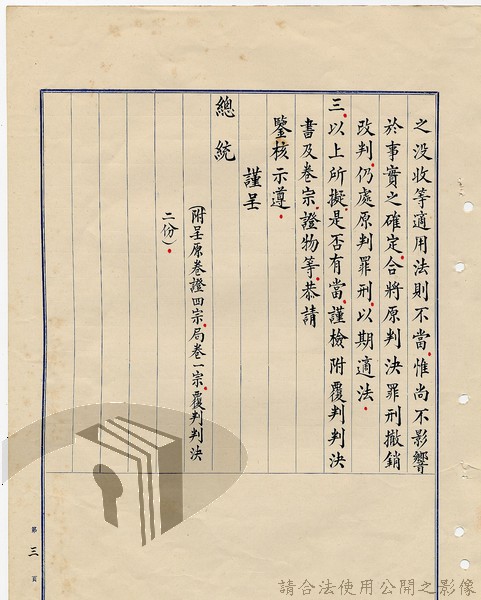 之没收等適用法則不當惟尚不影響
於事實之確定合將原判決罪刑撤銷
改判仍處原判罪刑以期適法
三、以上所擬是否有當謹檢附覆判判決
書及卷宗證物等恭請
鑒核示遵
謹呈
總統
(附呈原卷證四宗局卷一宗覆判判決
二份)
第三頁
請合法使用公開之影像